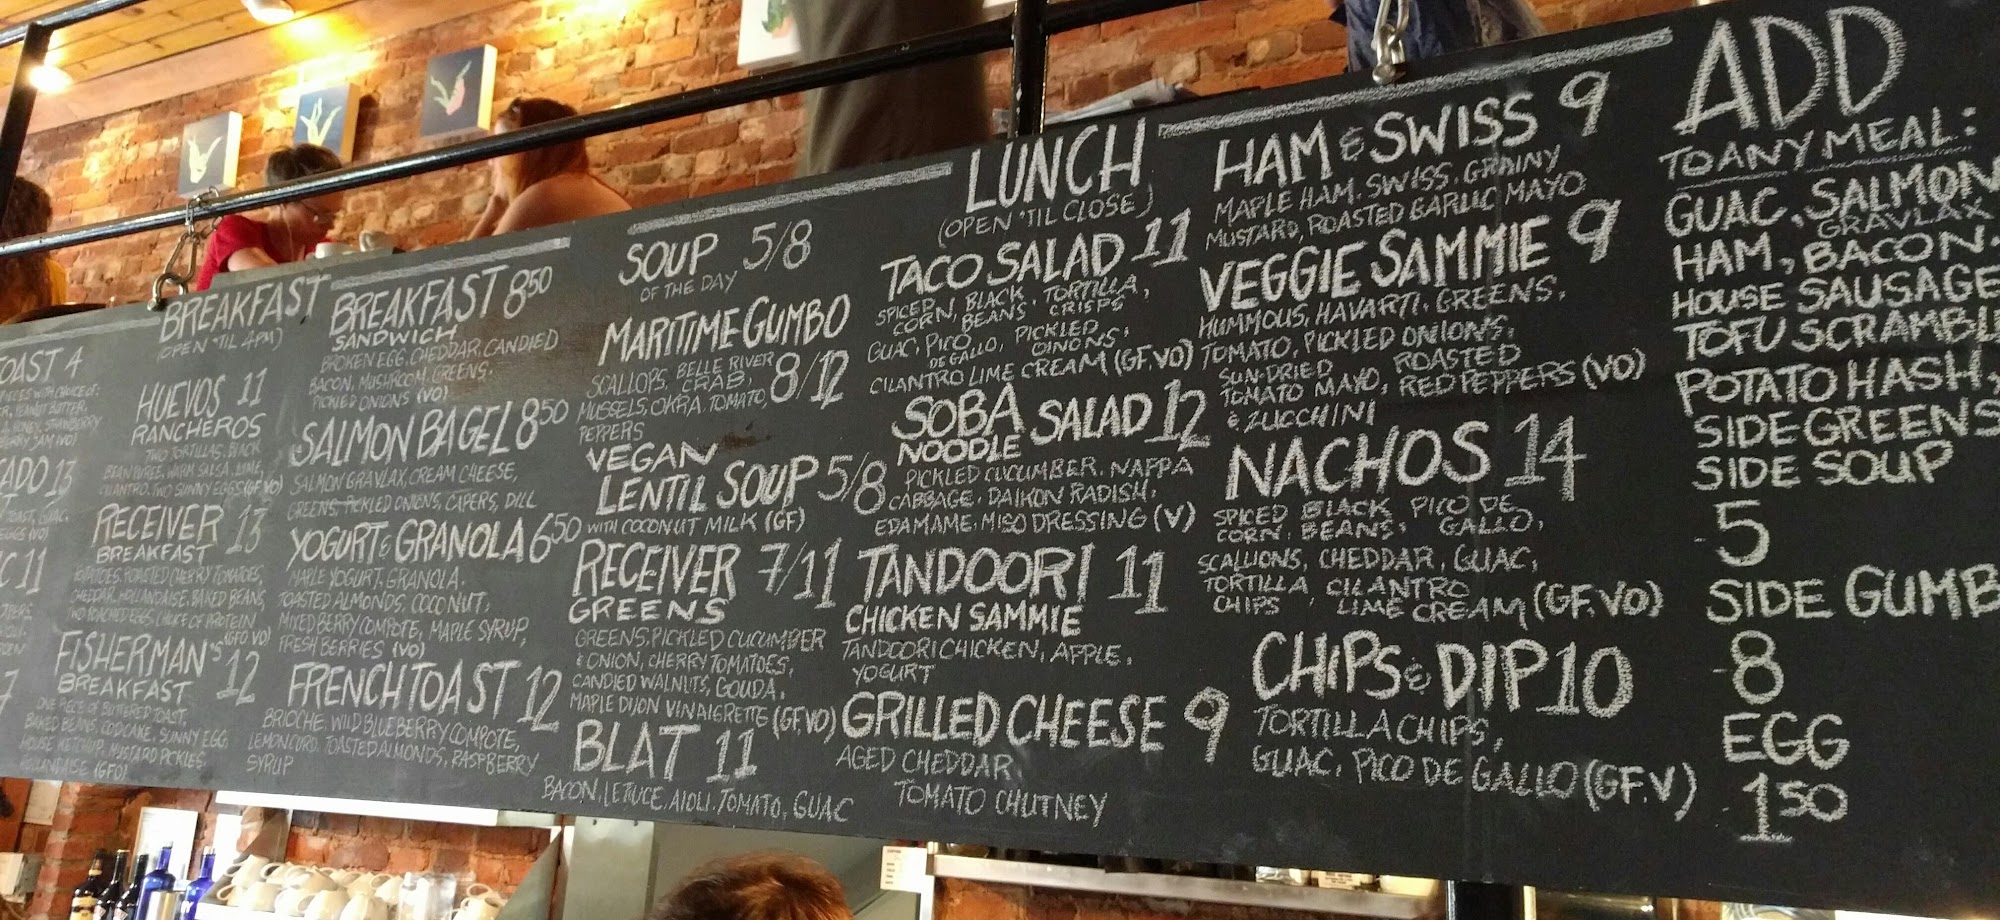 OAST 4
ADO 13
C 11
7
BREAKFAST
(OPEN 'TIL 4PM)
HUEVOS 11
RANCHEROS
TWO TORTILLAS, BLACK
BEAN PUREE, WARM SALSA, LIME,
CILANTRO, TWO SUNNY EGGS (GF VO)
RECEIVER 13
BREAKFAST
POTATOES, ROASTED CHERRY TOMATOES,
CHEDDAR, HOLLANDAISE, BAKED BEANS,
TWO POACHED EGGS, CHOICE OF PROTEIN
(GFO VO)
FISHERMAN'S 12
BREAKFAST
ONE PIECE OF BUTTERED TOAST,
BAKED BEANS, CODCAKE, SUNNY EGG
HOUSE KETCHUP, MUSTARD PICKLES
HOLLANDAISE (GFO)
BREAKFAST 8 50
SANDWICH
BROKEN EGG, CHEDDAR, CANDIED
BACON, MUSHROOM, GREENS,
PICKLED ONIONS (VO)
SALMON BAGEL 8 50
SALMON GRAVLAX, CREAM CHEESE,
GREENS, PICKLED ONIONS, CAPERS, DILL
YOGURT & GRANOLA 6 50
MAPLE YOGURT, GRANOLA,
TOASTED ALMONDS, COCONUT,
MIXED BERRY COMPOTE, MAPLE SYRUP,
FRESH BERRIES (VO)
FRENCH TOAST 12
BRIOCHE, WILD BLUEBERRY COMPOTE,
LEMON CURD, TOASTED ALMONDS, RASPBERRY
SYRUP
SOUP 5/8
OF THE DAY
MARITIME GUMBO
SCALLOPS, BELLE RIVER
CRAB, 8/12
MUSSELS, OKRA, TOMATO,
PEPPERS
VEGAN
LENTIL SOUP 5/8
WITH COCONUT MILK (GF)
RECEIVER 7/11
GREENS
GREENS, PICKLED CUCUMBER
& ONION, CHERRY TOMATOES,
CANDIED WALNUTS, GOUDA,
MAPLE DIJON VINAIGRETTE (GF.VO)
BLAT 11
BACON, LETTUCE, AIOLI, TOMATO, GUAC
LUNCH
(OPEN 'TIL CLOSE)
TACO SALAD 11
SPICED BLACK TORTILLA,
CORN, BEANS CRISPS
GUAC, PICO PICKLED
DE GALLO, ONIONS,
CILANTRO LIME CREAM (GF.VO)
SOBA SALAD 12
NOODLE
PICKLED CUCUMBER, NAPPA
CABBAGE, DAIKON RADISH,
EDAMAME, MISO DRESSING (V)
TANDOORI 11
CHICKEN SAMMIE
TANDOORI CHICKEN, APPLE,
YOGURT
GRILLED CHEESE 9
AGED CHEDDAR,
TOMATO CHUTNEY
HAM & SWISS 9
MAPLE HAM, SWISS, GRAINY
MUSTARD, ROASTED GARLIC MAYO
VEGGIE SAMMIE 9
HUMMOUS, HAVARTI, GREENS,
TOMATO, PICKLED ONIONS,
SUN-DRIED ROASTED
TOMATO MAYO, RED PEPPERS (VO)
& ZUCCHINI
NACHOS 14
SPICED BLACK PICO DE
CORN, BEANS, GALLO,
SCALLIONS, CHEDDAR, GUAC,
TORTILLA CILANTRO
CHIPS, LIME CREAM (GF.VO)
CHIPS & DIP 10
TORTILLA CHIPS,
GUAC, PICO DE GALLO (GF.V)
ADD
TO ANY MEAL:
GUAC, SALMON
GRAVLAX
HAM, BACON,
HOUSE SAUSAGE
TOFU SCRAMBL
POTATO HASH,
SIDE GREENS
SIDE SOUP
-5
SIDE GUMB
-8
EGG
1 50